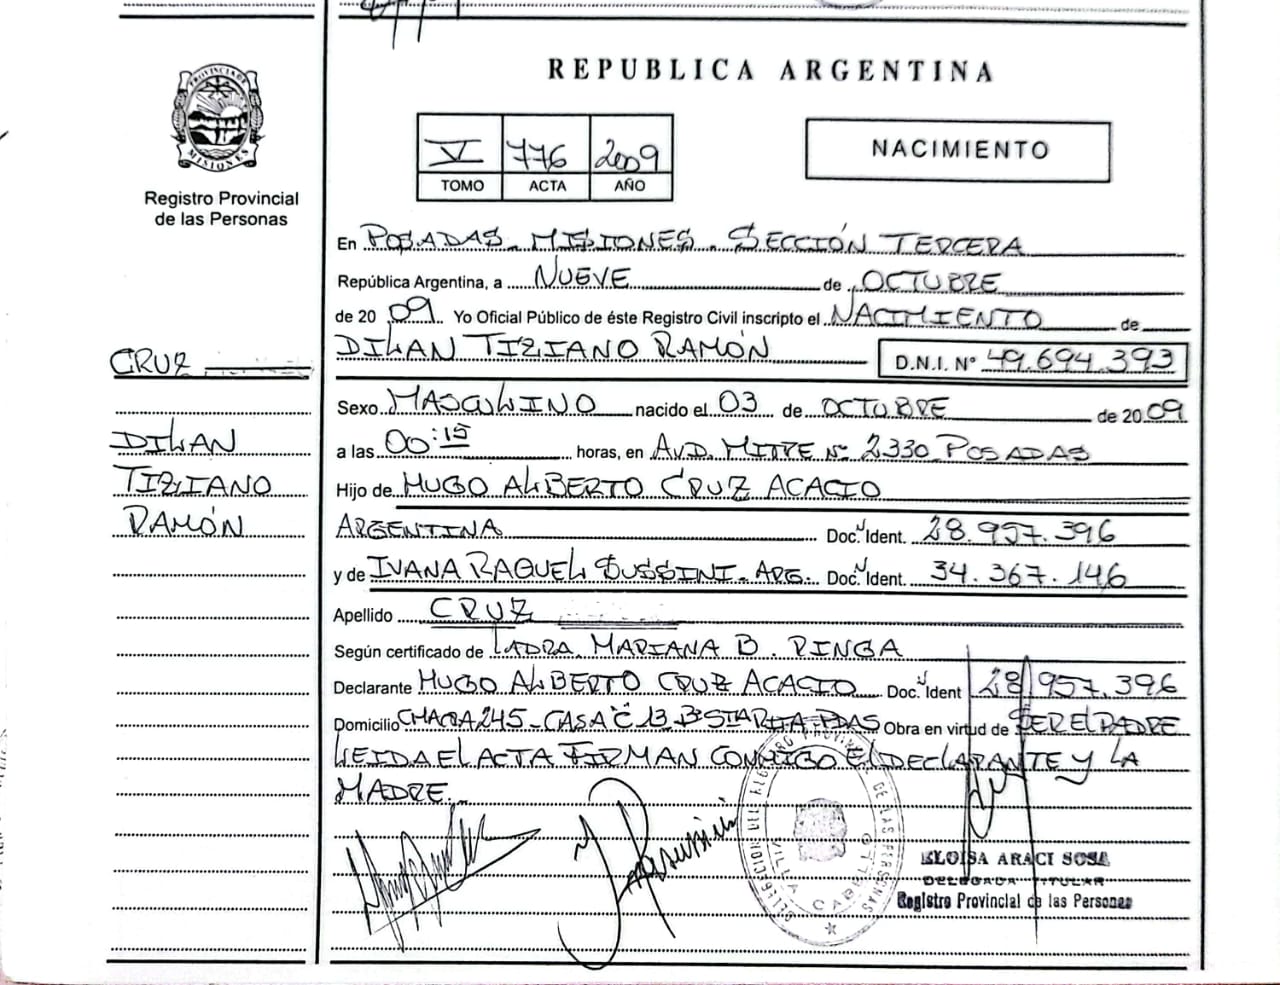 PROVINCIA DE
MISIONES
Registro Provincial
de las Personas
REPUBLICA ARGENTINA
V 776 2009
TOMO ACTA AÑO
NACIMIENTO
En POSADAS. MISIONES. SECCIÓN TERCERA
República Argentina, a NUEVE de OCTUBRE
de 20 09. Yo Oficial Público de éste Registro Civil inscripto el NACIMIENTO de
DILAN TIZIANO RAMÓN D.N.I. Nº 49.694.393
CRUZ
Sexo MASCULINO nacido el 03 de OCTUBRE de 2009
DILAN
a las 00:15 horas, en AVD. MITRE Nº 2330 POSADAS
TIZIANO
Hijo de HUGO ALBERTO CRUZ ACACIO
RAMÓN
ARGENTINA Doc. Ident. 28.957.396
y de IVANA RAQUEL SUSSINI. ARG. Doc. Ident. 34.367.146
Apellido CRUZ
Según certificado de LADRA. MARIANA B. RINGA
Declarante HUGO ALBERTO CRUZ ACACIO Doc. Ident 28.957.396
Domicilio CHACRA 245 - CASA "C" 13 Obra en virtud de SER EL PADRE
LEIDA EL ACTA FIRMAN CONMIGO EL DECLARANTE Y LA
MADRE.
DELEGACION DEL REGISTRO PROVINCIAL DE LAS PERSONAS
VILLA CABELLO
ELOISA ARACI SOSA
DELEGADA TITULAR
Registro Provincial de las Personas